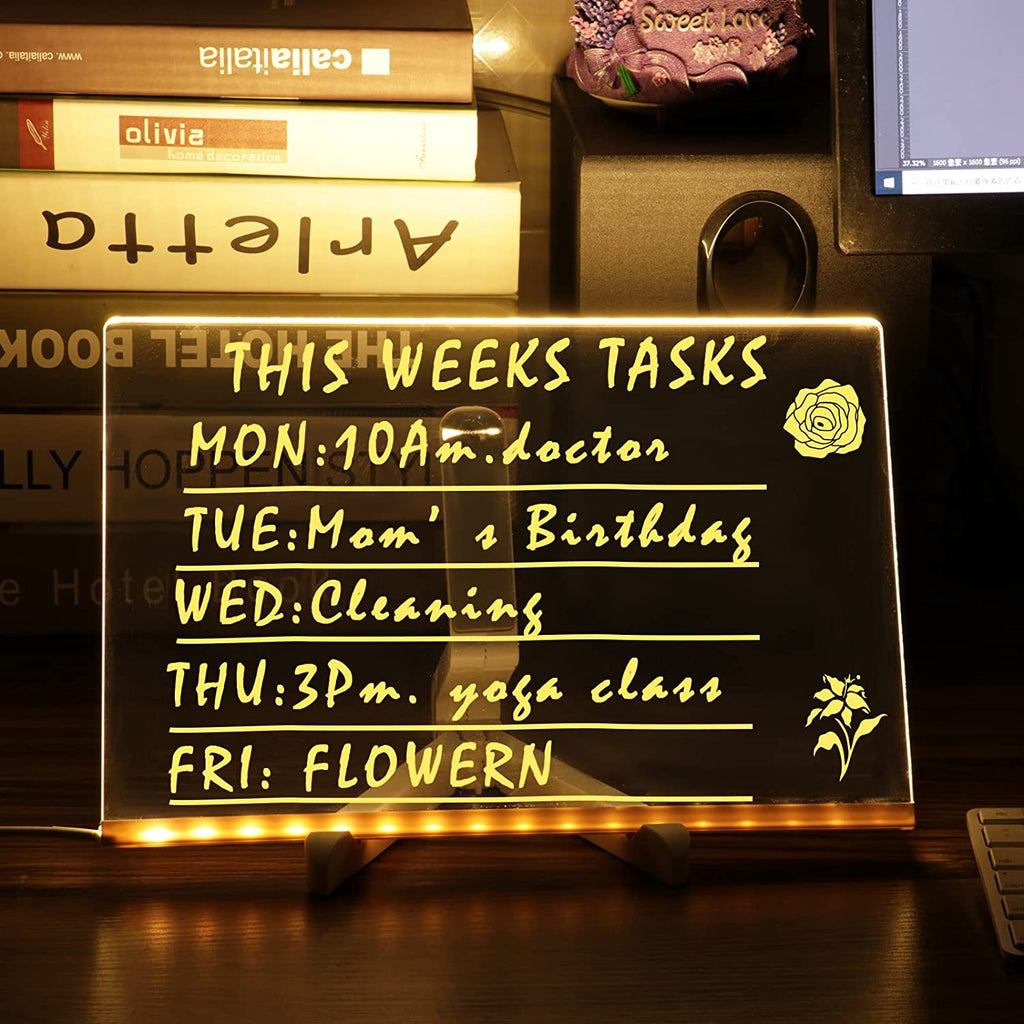 www.caliaitalia.
caliaitalia
Sweet Love
olivia
home decoration
Arletta
THE HOTEL BOOK
LLY HOPPEN STY
e Hotel Book
37.32% 1600 像素 x 1600 像素 (96 ppi)
THIS WEEKS TASKS
MON:10Am.doctor
TUE:Mom's Birthday
WED:Cleaning
THU:3Pm. yoga class
FRI: FLOWERN